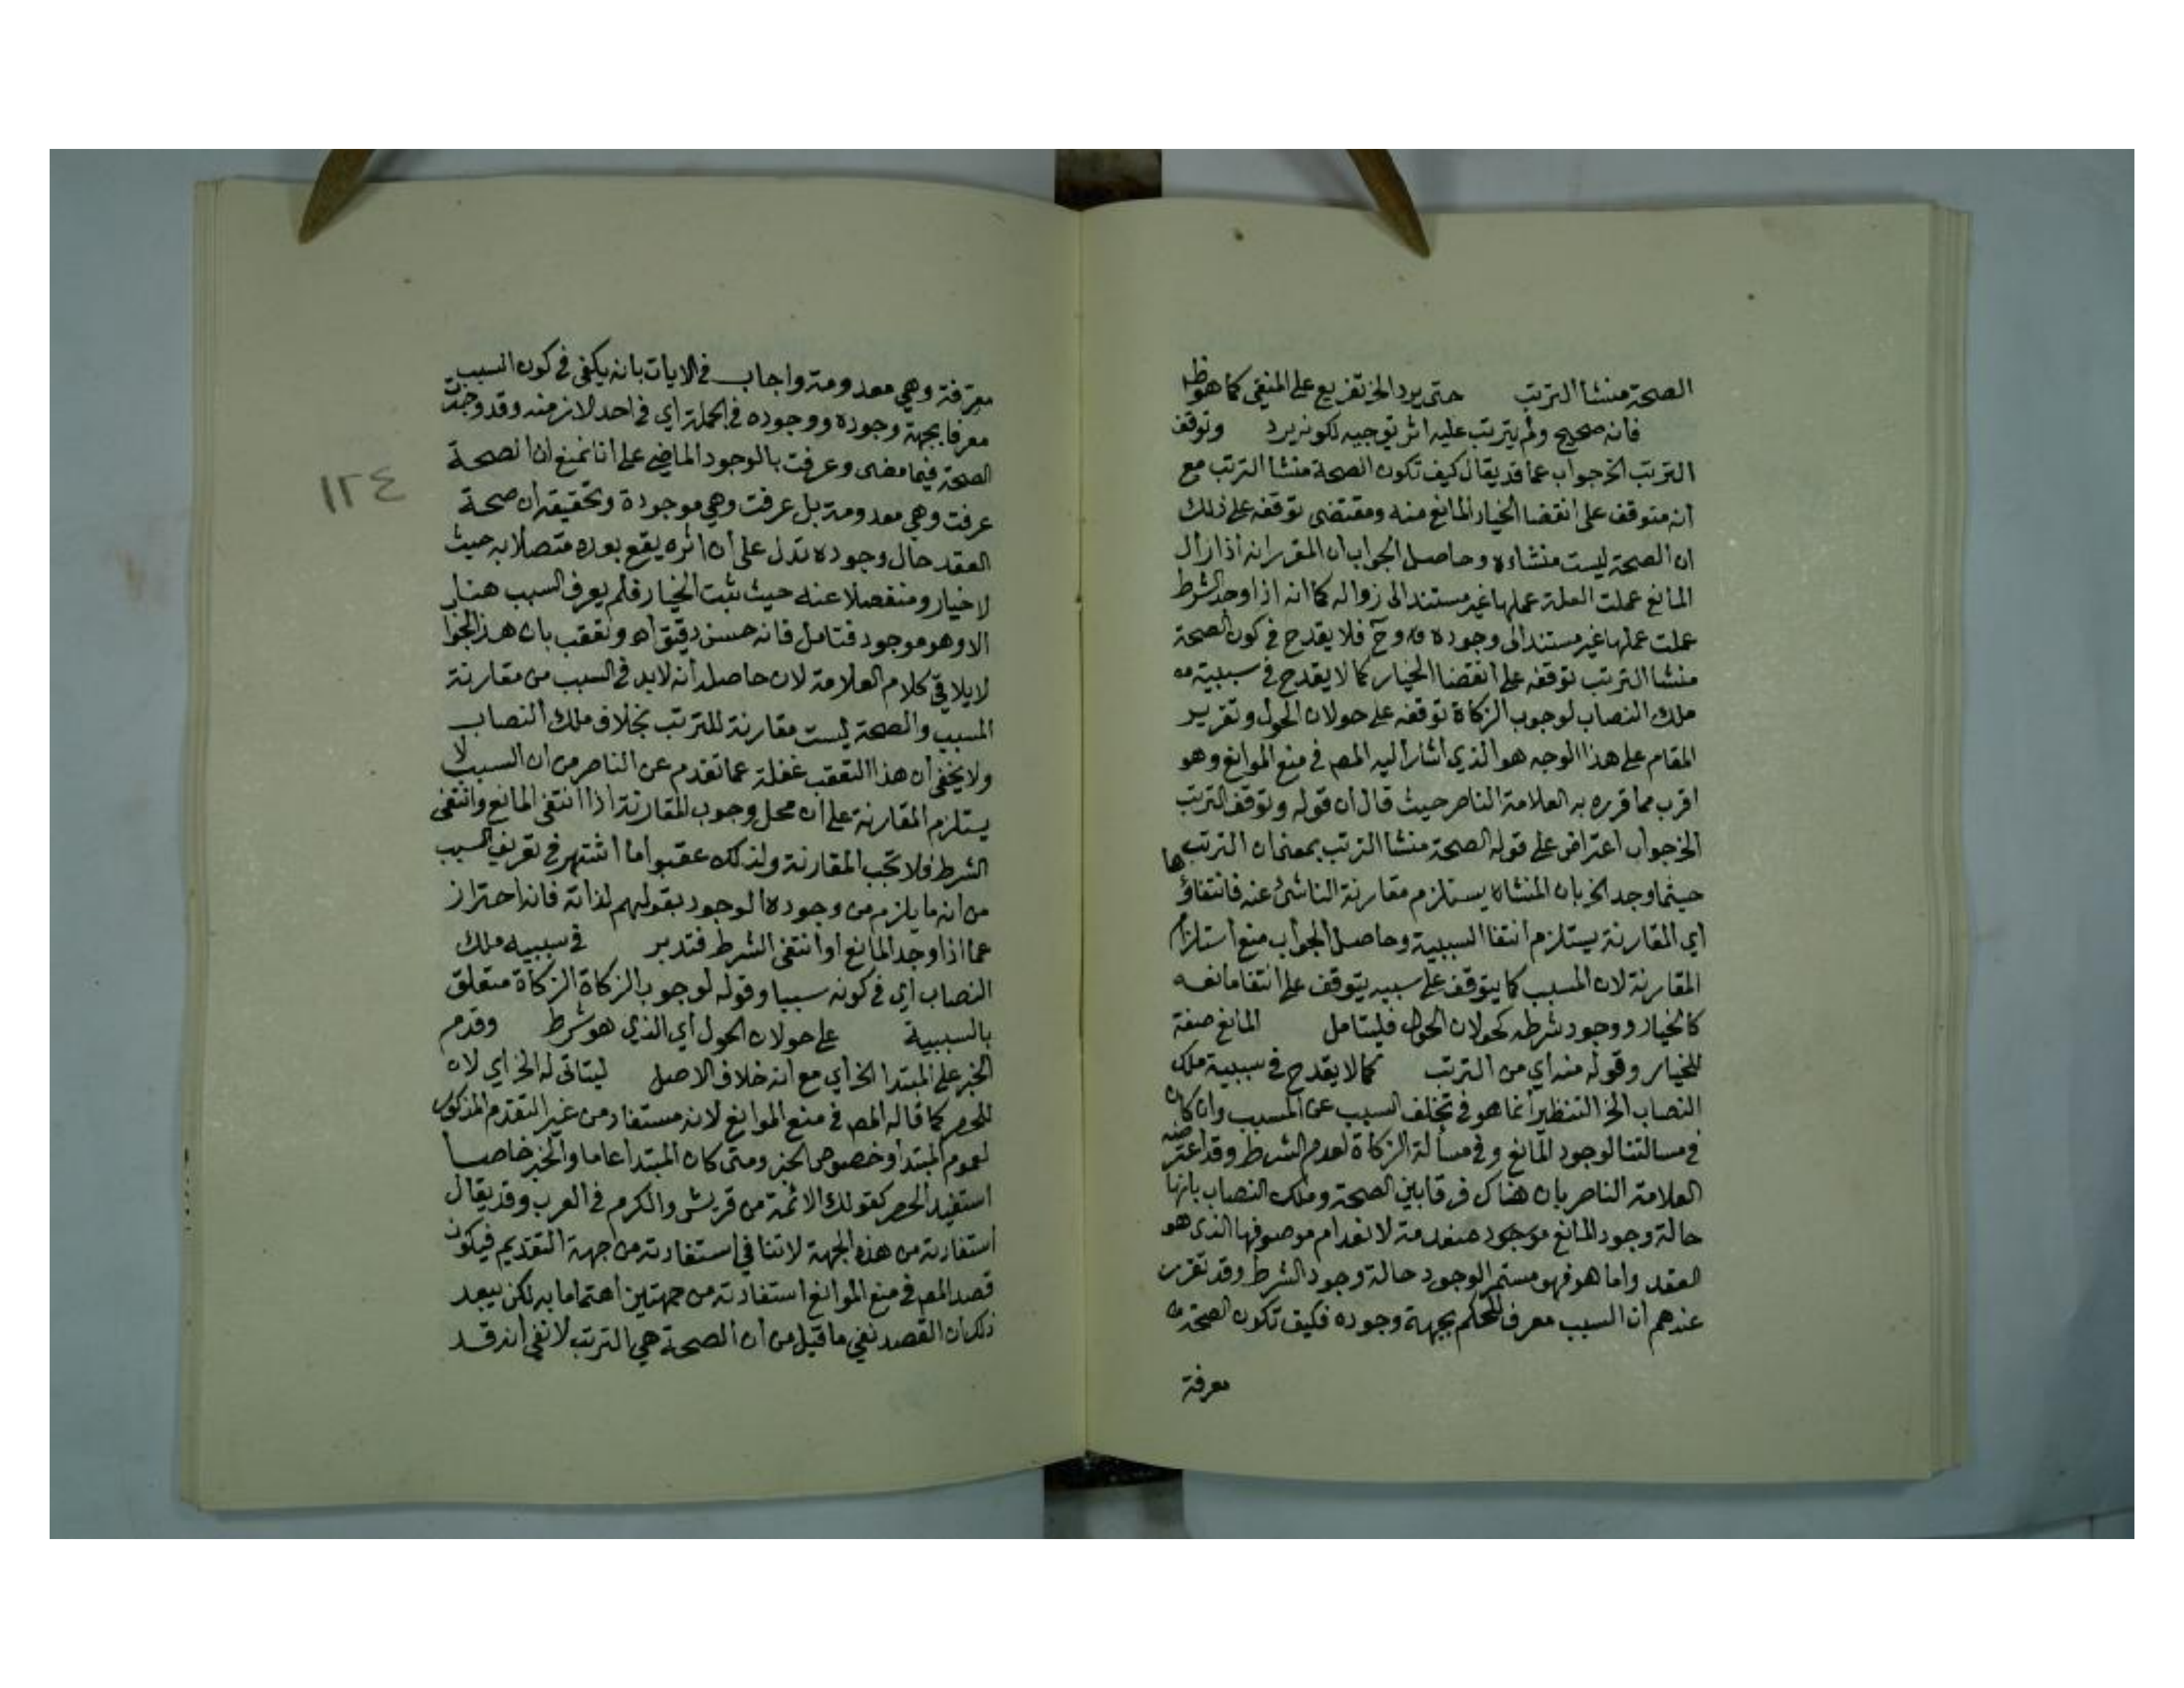 الصحة منشأ الترتب حتى يرد الخ تفريع على المنفي كما هو ظ
فانه صحيح ولم يترتب عليه اثر توجيه لكونه يرد وتوقف
الترتب الخ جواب عما قد يقال كيف تكون الصحة منشا الترتب مع
انه متوقف على انقضا الخيار المانع منه ومقتضى توقفه على ذلك
ان الصحة ليست منشاءه وحاصل الجواب ان المقرر انه اذا زال
المانع عملت العلة عملها غير مستند الى زواله كما انه اذا وجد الشرط
عملت عملها غير مستند الى وجوده وح فلا يقدح في كون الصحة
منشا الترتب توقفه على انقضا الخيار كما لا يقدح في سببية
ملك النصاب لوجوب الزكاة توقفه على حولان الحول وتقرير
المقام على هذا الوجه هو الذي اشار اليه المصـ في منع الموانع وهو
اقرب مما قرره به العلامة الناصر حيث قال ان قوله وتوقف الترتب
الخ جواب اعتراض على قوله الصحة منشا الترتب بمعنى ان الترتب
حيثما وجد الخ بان المنشاه يستلزم مقارنة الناشئ عنه فانتفاؤها
اي المقارنة يستلزم انتفا السببية وحاصل الجواب منع استلزام
المقارنة لان المسبب كما يتوقف على سببه يتوقف على انتفا مانعه
كالخيار ووجود شرطه كحولان الحول فليتامل المانع صفة
للخيار وقوله منه اي من الترتب كما لا يقدح في سببية ملك
النصاب الخ التنظير انما هو في تخلف السبب عن المسبب وان كان
في مسالتنا لوجود المانع وفي مسألة الزكاة لعدم الشرط وقد اعترضه
العلامة الناصر بان هناك فرقا بين الصحة وملك النصاب بانها
حالة وجود المانع منعدمة لانعدام موصوفها الذي هو
العقد واما هو فهو مستمر الوجود حالة وجود الشرط وقد تقرر
عندهم ان السبب معرف للحكم بجهة وجوده فكيف تكون الصحة
معرفة
معرفة وهي معدومة واجاب في الايات بانه يكفي في كون السبب
معرفا بجهة وجوده ووجوده في الجملة اي في احد الازمنه وقد وجدت
الصحة فيما مضى وعرفت بالوجود الماضي على انا نمنع ان الصحة
عرفت وهي معدومة بل عرفت وهي موجودة وتحقيقه ان صحة
العقد حال وجوده تدل على ان اثره يقع بعده متصلا به حيث
لا خيار ومنفصلا عنه حيث ثبت الخيار فلم يعرف السبب هنا
الا وهو موجود فتامل فانه حسن دقيق اه وتعقب بان هذ الجوا
لا يلاقي كلام العلامة لان حاصله انه لا بد في السبب من مقارنة
المسبب والصحة ليست مقارنة للترتب بخلاف ملك النصاب
ولا يخفى ان هذا التعقب غفلة عما تقدم عن الناصر من ان السبب لا
يستلزم المقارنة على ان محل وجوب المقارنة اذا انتفى المانع وانتفى
الشرط فلا تجب المقارنة ولذلك عقبوا ما اشتهر في تعريف السبب
من انه ما يلزم من وجوده الوجود بقولهم لذاته فانه احتراز
عما اذا وجد المانع او انتفى الشرط فتدبر في سببيه ملك
النصاب اي في كونه سببا وقوله لوجوب الزكاة الزكاة متعلق
بالسببية على حولان الحول اي الذي هو شرط وقدم
الخبر على المبتدا الخ أي مع انه خلاف الاصل ليتاتى له الخ اي لان
للحصر كما قاله المصـ في منع الموانع لانه مستفاد من غير التقدم المذكور
لعموم المبتدا وخصوص الخبر ومتى كان المبتدا عاما والخبر خاصا
استفيد الحصر كقولك الائمة من قريش والكرم في العرب وقد يقال
استفادته من هذه الجهة لا تنافي استفادته من جهة التقديم فيكون
قصد المصـ في منع الموانع استفادته من جهتين اهتماما به لكن يبعد
ذلك ان القصد نفي ما قيل من ان الصحة هي الترتب لا نفي انه قد
١٢٤